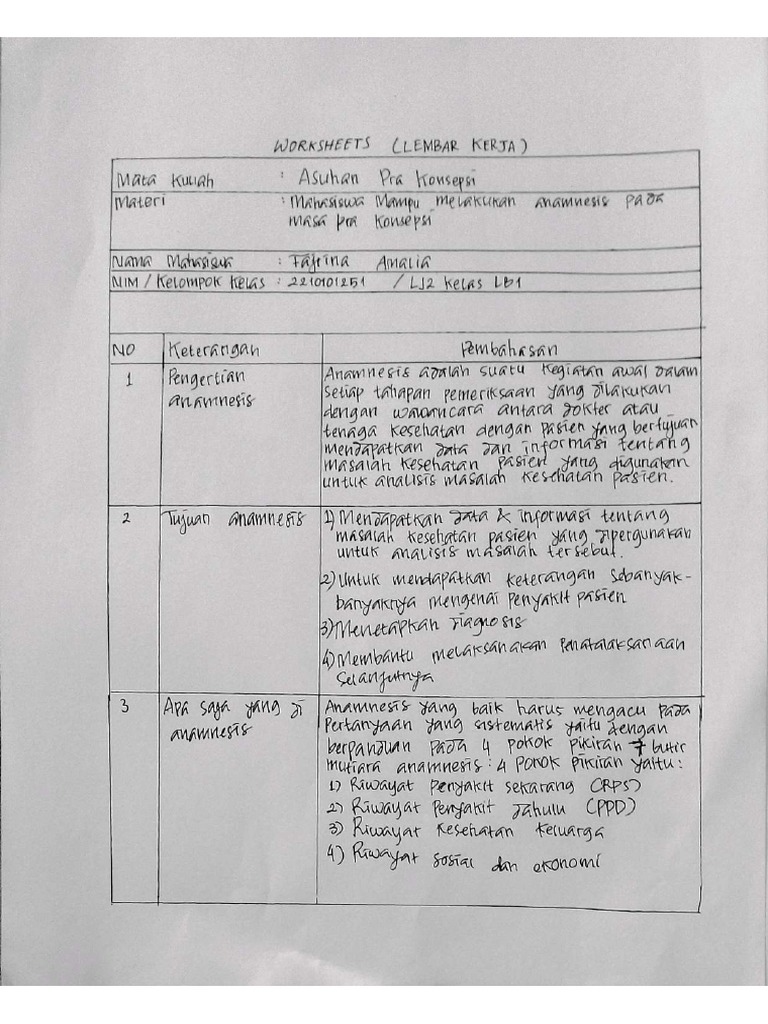 WORKSHEETS (LEMBAR KERJA)
Mata Kuliah : Asuhan Pra Konsepsi
Materi : Mahasiswa Mampu melakukan anamnesis pada
masa pra konsepsi
Nama Mahasiswa : Fajrina Amalia
NIM / Kelompok Kelas : 2210101251 / LJ2 Kelas LB1
NO Keterangan Pembahasan
1 Pengertian
anamnesis
Anamnesis adalah suatu kegiatan awal dalam
setiap tahapan pemeriksaan yang dilakukan
dengan wawancara antara dokter atau
tenaga kesehatan dengan pasien yang bertujuan
mendapatkan data dan informasi tentang
masalah kesehatan pasien yang digunakan
untuk analisis masalah kesehatan pasien.
2 Tujuan anamnesis
1) Mendapatkan data & informasi tentang
masalah kesehatan pasien yang dipergunakan
untuk analisis masalah tersebut.
2) Untuk mendapatkan keterangan sebanyak-
banyaknya mengenai penyakit pasien
3) Menetapkan diagnosis
4) Membantu melaksanakan penatalaksanaan
selanjutnya
3 Apa saja yang di
anamnesis
Anamnesis yang baik harus mengacu pada
pertanyaan yang sistematis yaitu dengan
berpanduan pada 4 pokok pikiran 7 butir
mutiara anamnesis : 4 pokok pikiran yaitu :
1) Riwayat penyakit sekarang (RPS)
2) Riwayat Penyakit dahulu (PPD)
3) Riwayat kesehatan keluarga
4) Riwayat sosial dan ekonomi